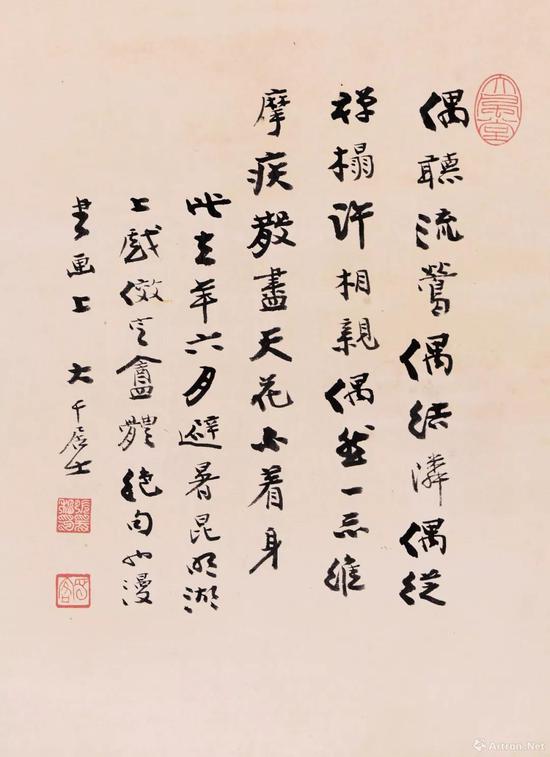 偶聽流鶯偶結隣偶從
禪榻許相親偶然一示維
摩疾散盡天花不着身
此去年六月避暑昆明湖
上戲傚定盦體絕句也漫
書画上 大千居士
大風堂
Artron.Net